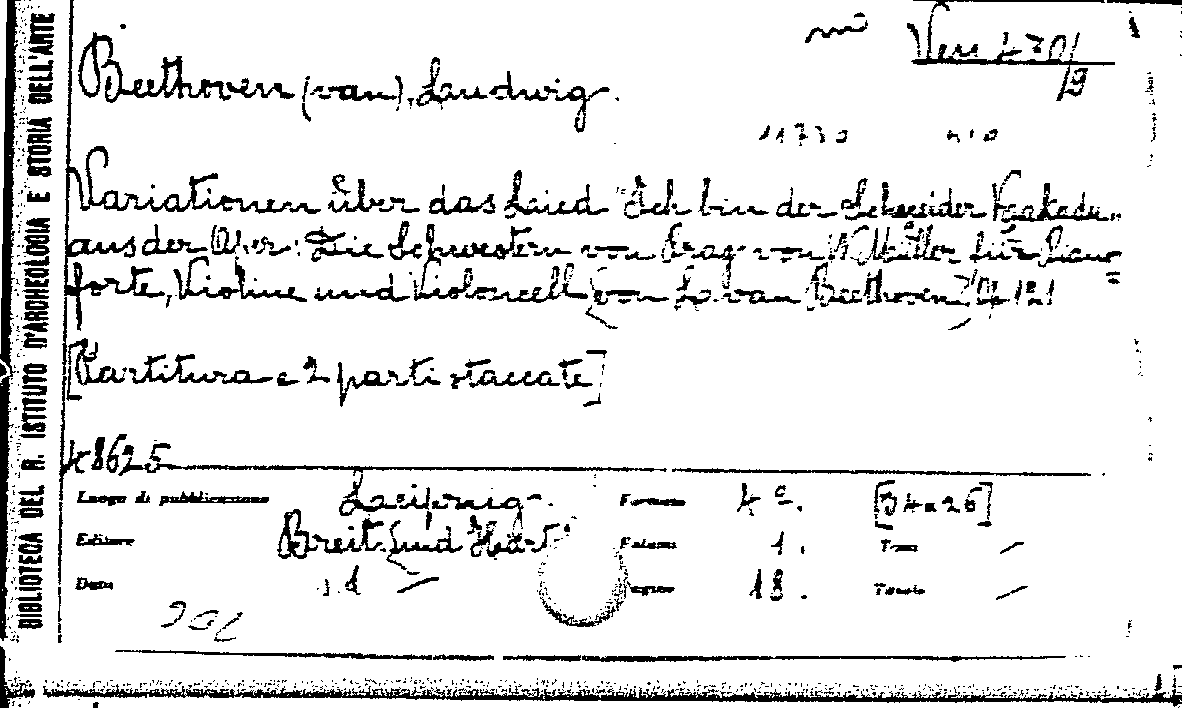 BIBLIOTECA DEL R. ISTITUTO D'ARCHEOLOGIA E STORIA DELL'ARTE
Ven 430/9
Beethoven (van), Ludwig.
Variationen über das Lied "Ich bin der Schneider Kaakadu"
aus der Oper: Die Schwestern von Prag von W. Müller für Piano=
forte, Violine und Violoncell von L. van Beethoven Op 121
[Partitura e 2 parti staccate]
48625
Luogo di pubblicazione Leipzig. Formato 4°. [34x26]
Editore Breit. und Härt. Volume 1. Tomo —
Data s.d. — Pagine 18. Tavole —